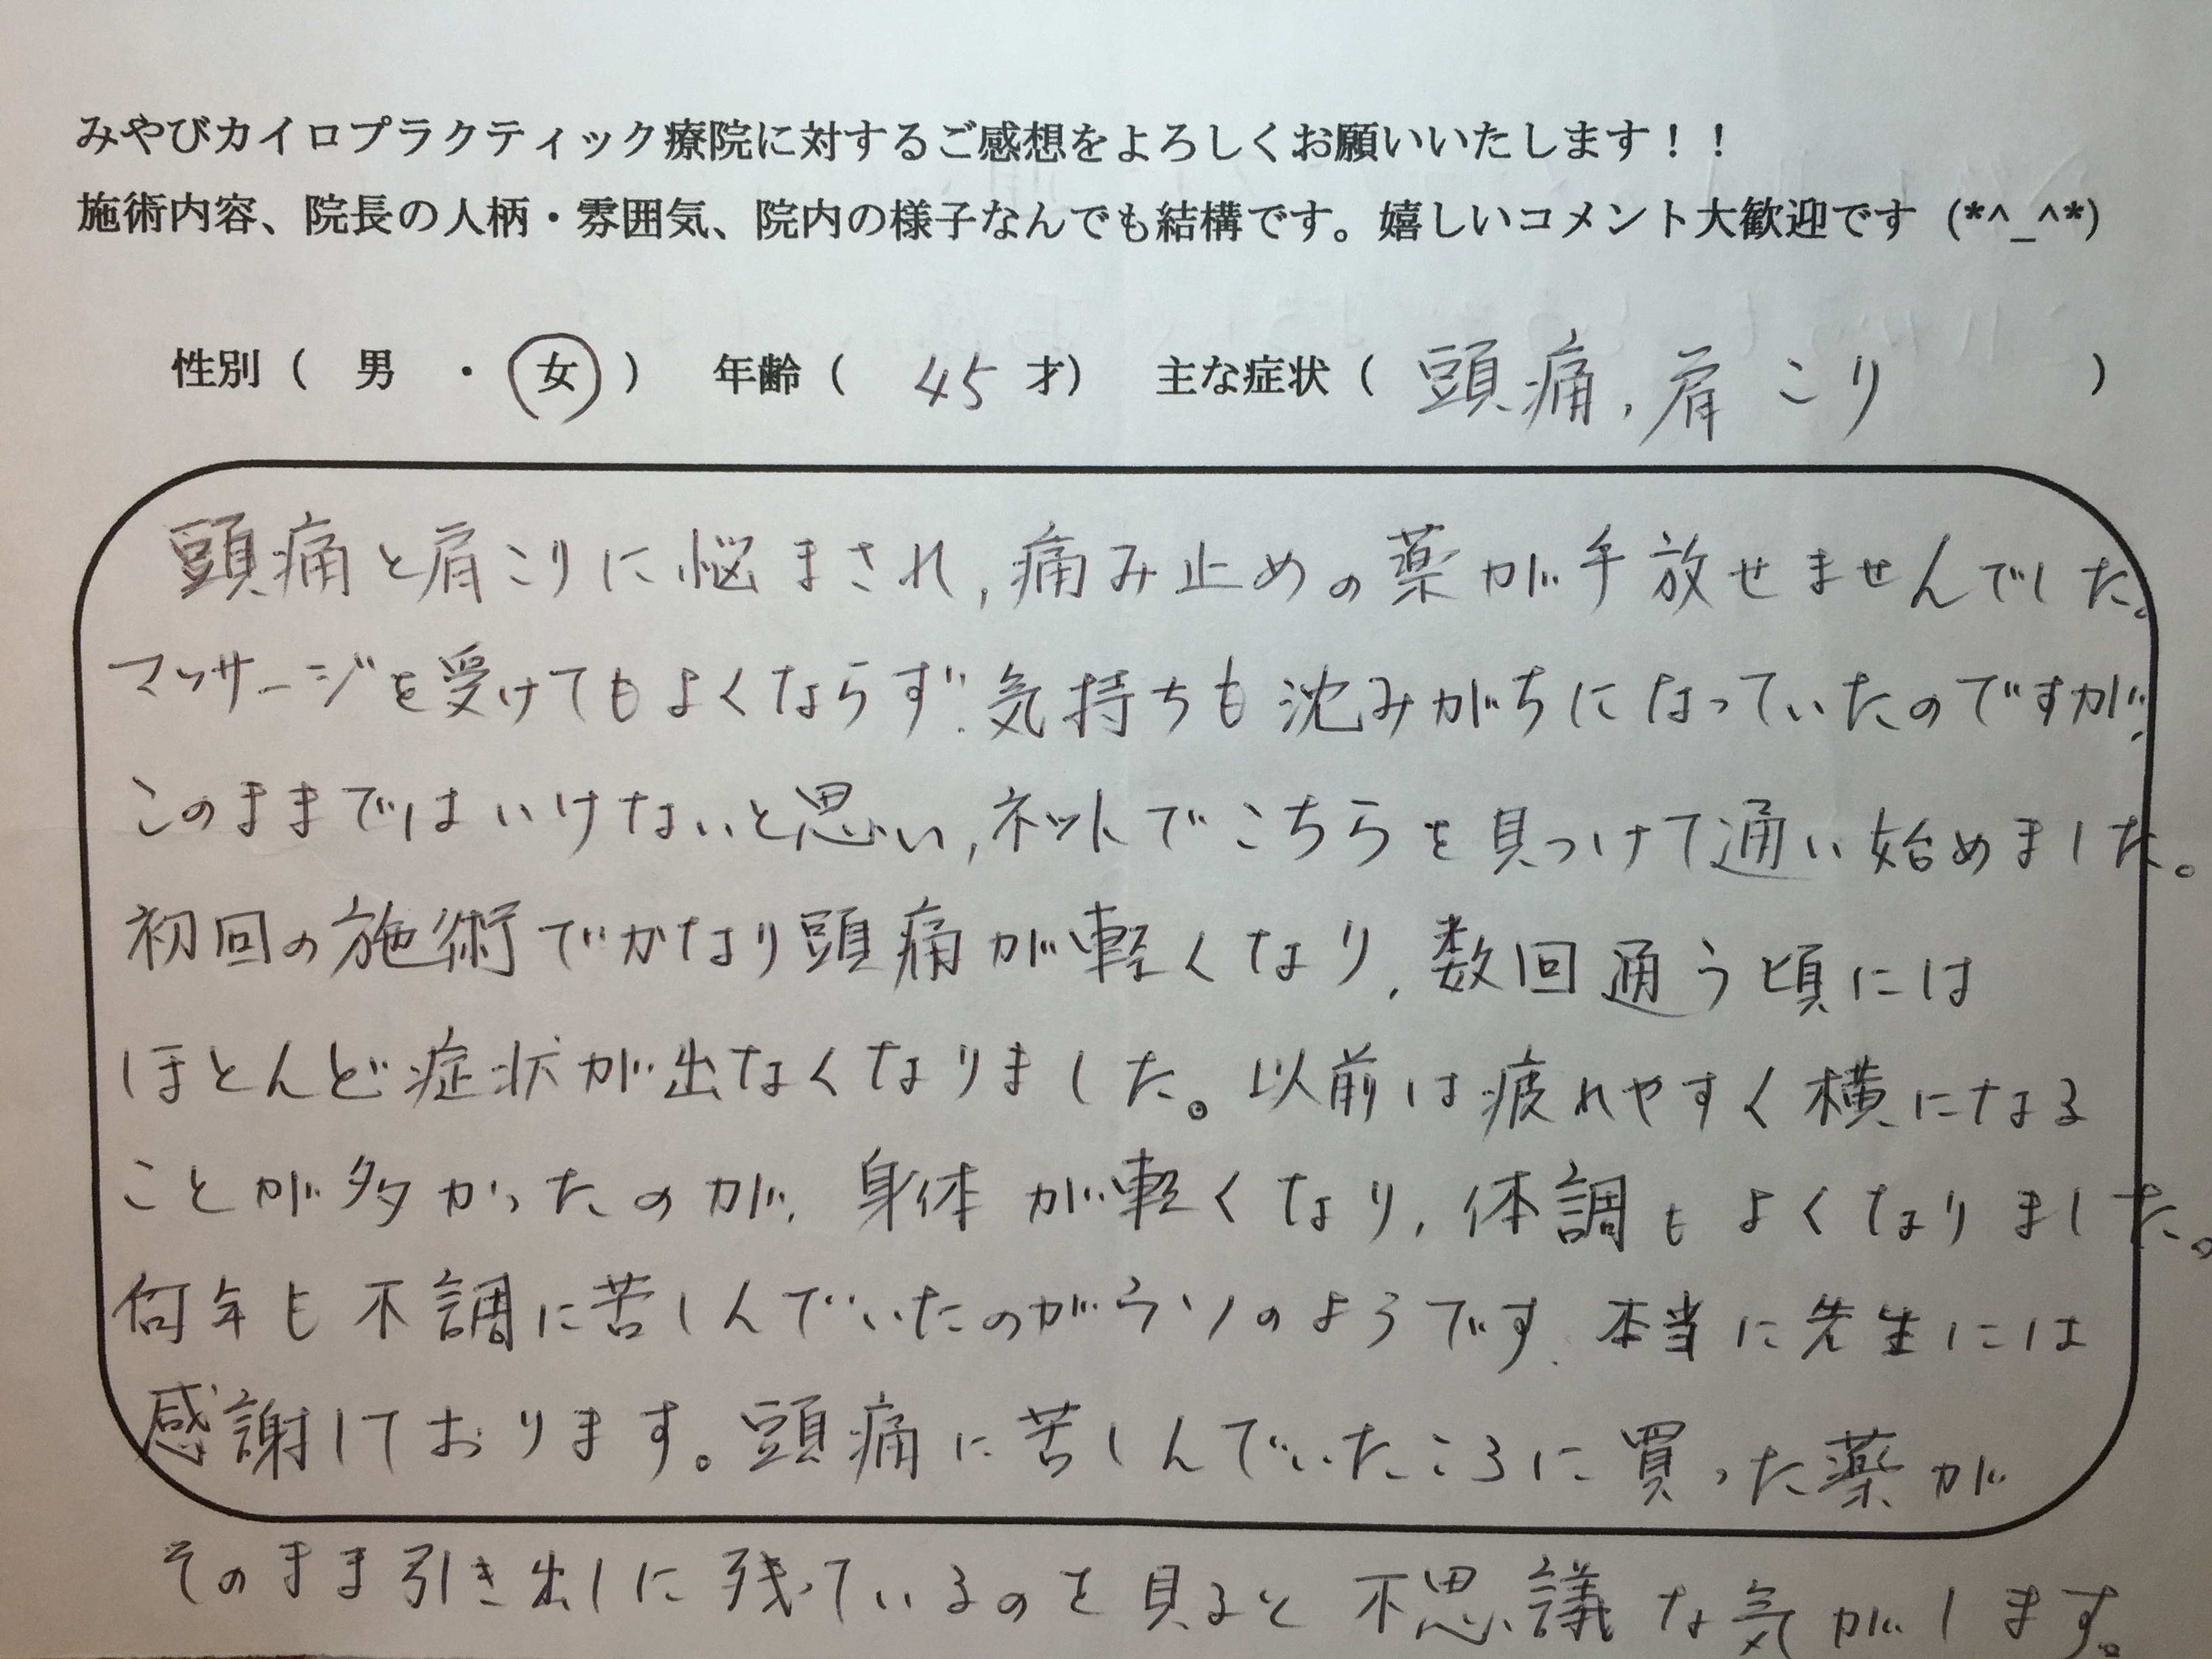 みやびカイロプラクティック療院に対するご感想をよろしくお願いいたします！！
施術内容、院長の人柄・雰囲気、院内の様子なんでも結構です。嬉しいコメント大歓迎です (*^_^*)
性別（ 男 ・ 女 ） 年齢（ 45 才） 主な症状（ 頭痛, 肩こり ）
頭痛と肩こりに悩まされ,痛み止めの薬が手放せませんでした。
マッサージを受けてもよくならず、気持ちも沈みがちになっていたのですが、
このままではいけないと思い,ネットでこちらを見つけて通い始めました。
初回の施術でかなり頭痛が軽くなり,数回通う頃には
ほとんど症状が出なくなりました。以前は疲れやすく横になる
ことが多かったのが、身体が軽くなり,体調もよくなりました。
何年も不調に苦しんでいたのがウソのようです、本当に先生には
感謝しております。頭痛に苦しんでいたころに買った薬が
そのまま引き出しに残っているのを見ると不思議な気がします。